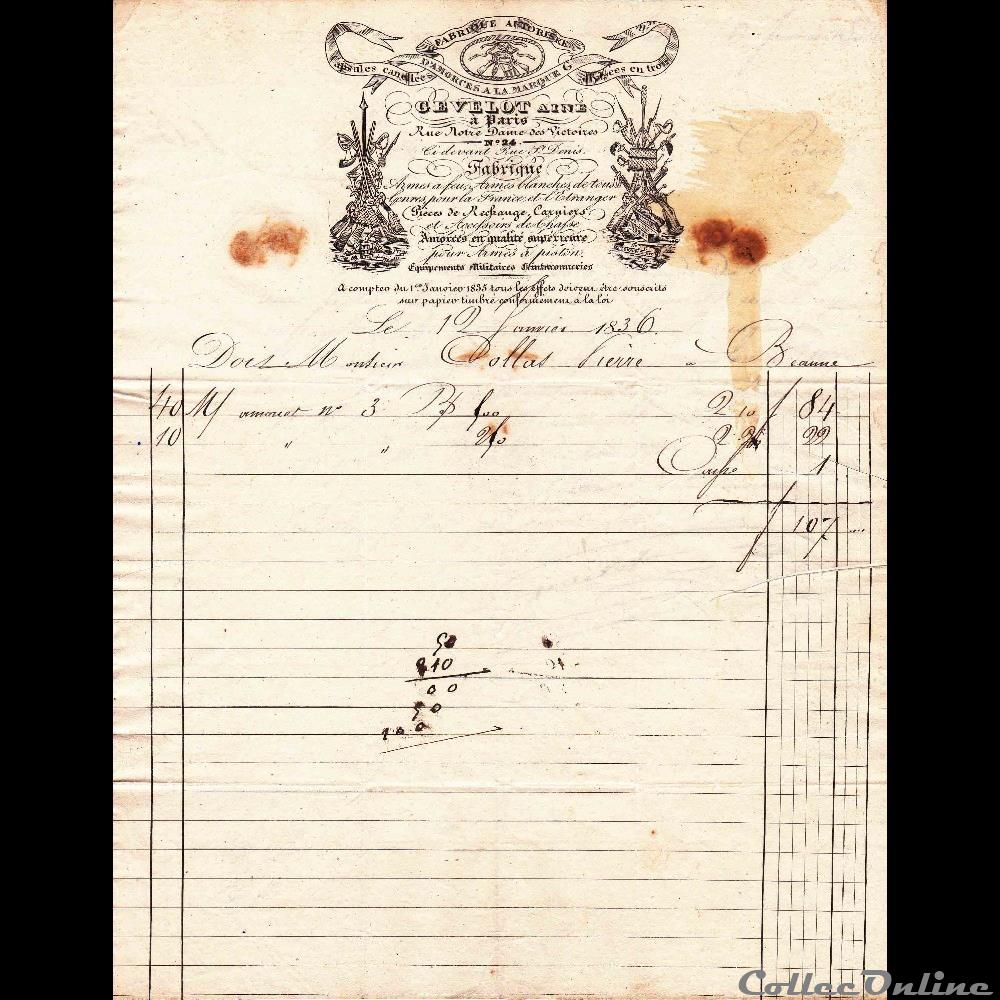 FABRIQUE AUTORISÉE
D'AMORCES A LA MARQUE G
Capsules cannelées
GEVELOT AINÉ
à Paris
Rue Notre Dame des Victoires
N° 24
Ci devant Rue St Denis.
Fabrique
Armes à feu, Armes blanches, de tous
Genres, pour la France et l'Etranger
Pièces de Rechange, Carniers,
et Accessoirs de Chasse
Amorces en qualité supérieure
pour Armes à piston.
Equipements Militaires
A compter du 1er Janvier 1835 tous les effets doivent être souscrits
sur papier timbré conformément à la loi
Le 12 Janvier 1836
Doit Monsieur Pierre à Beaune
40 M/ n° 3 2 10 84
10 " " 2 22
1
107
50
210
00
50
100
CollecOnline